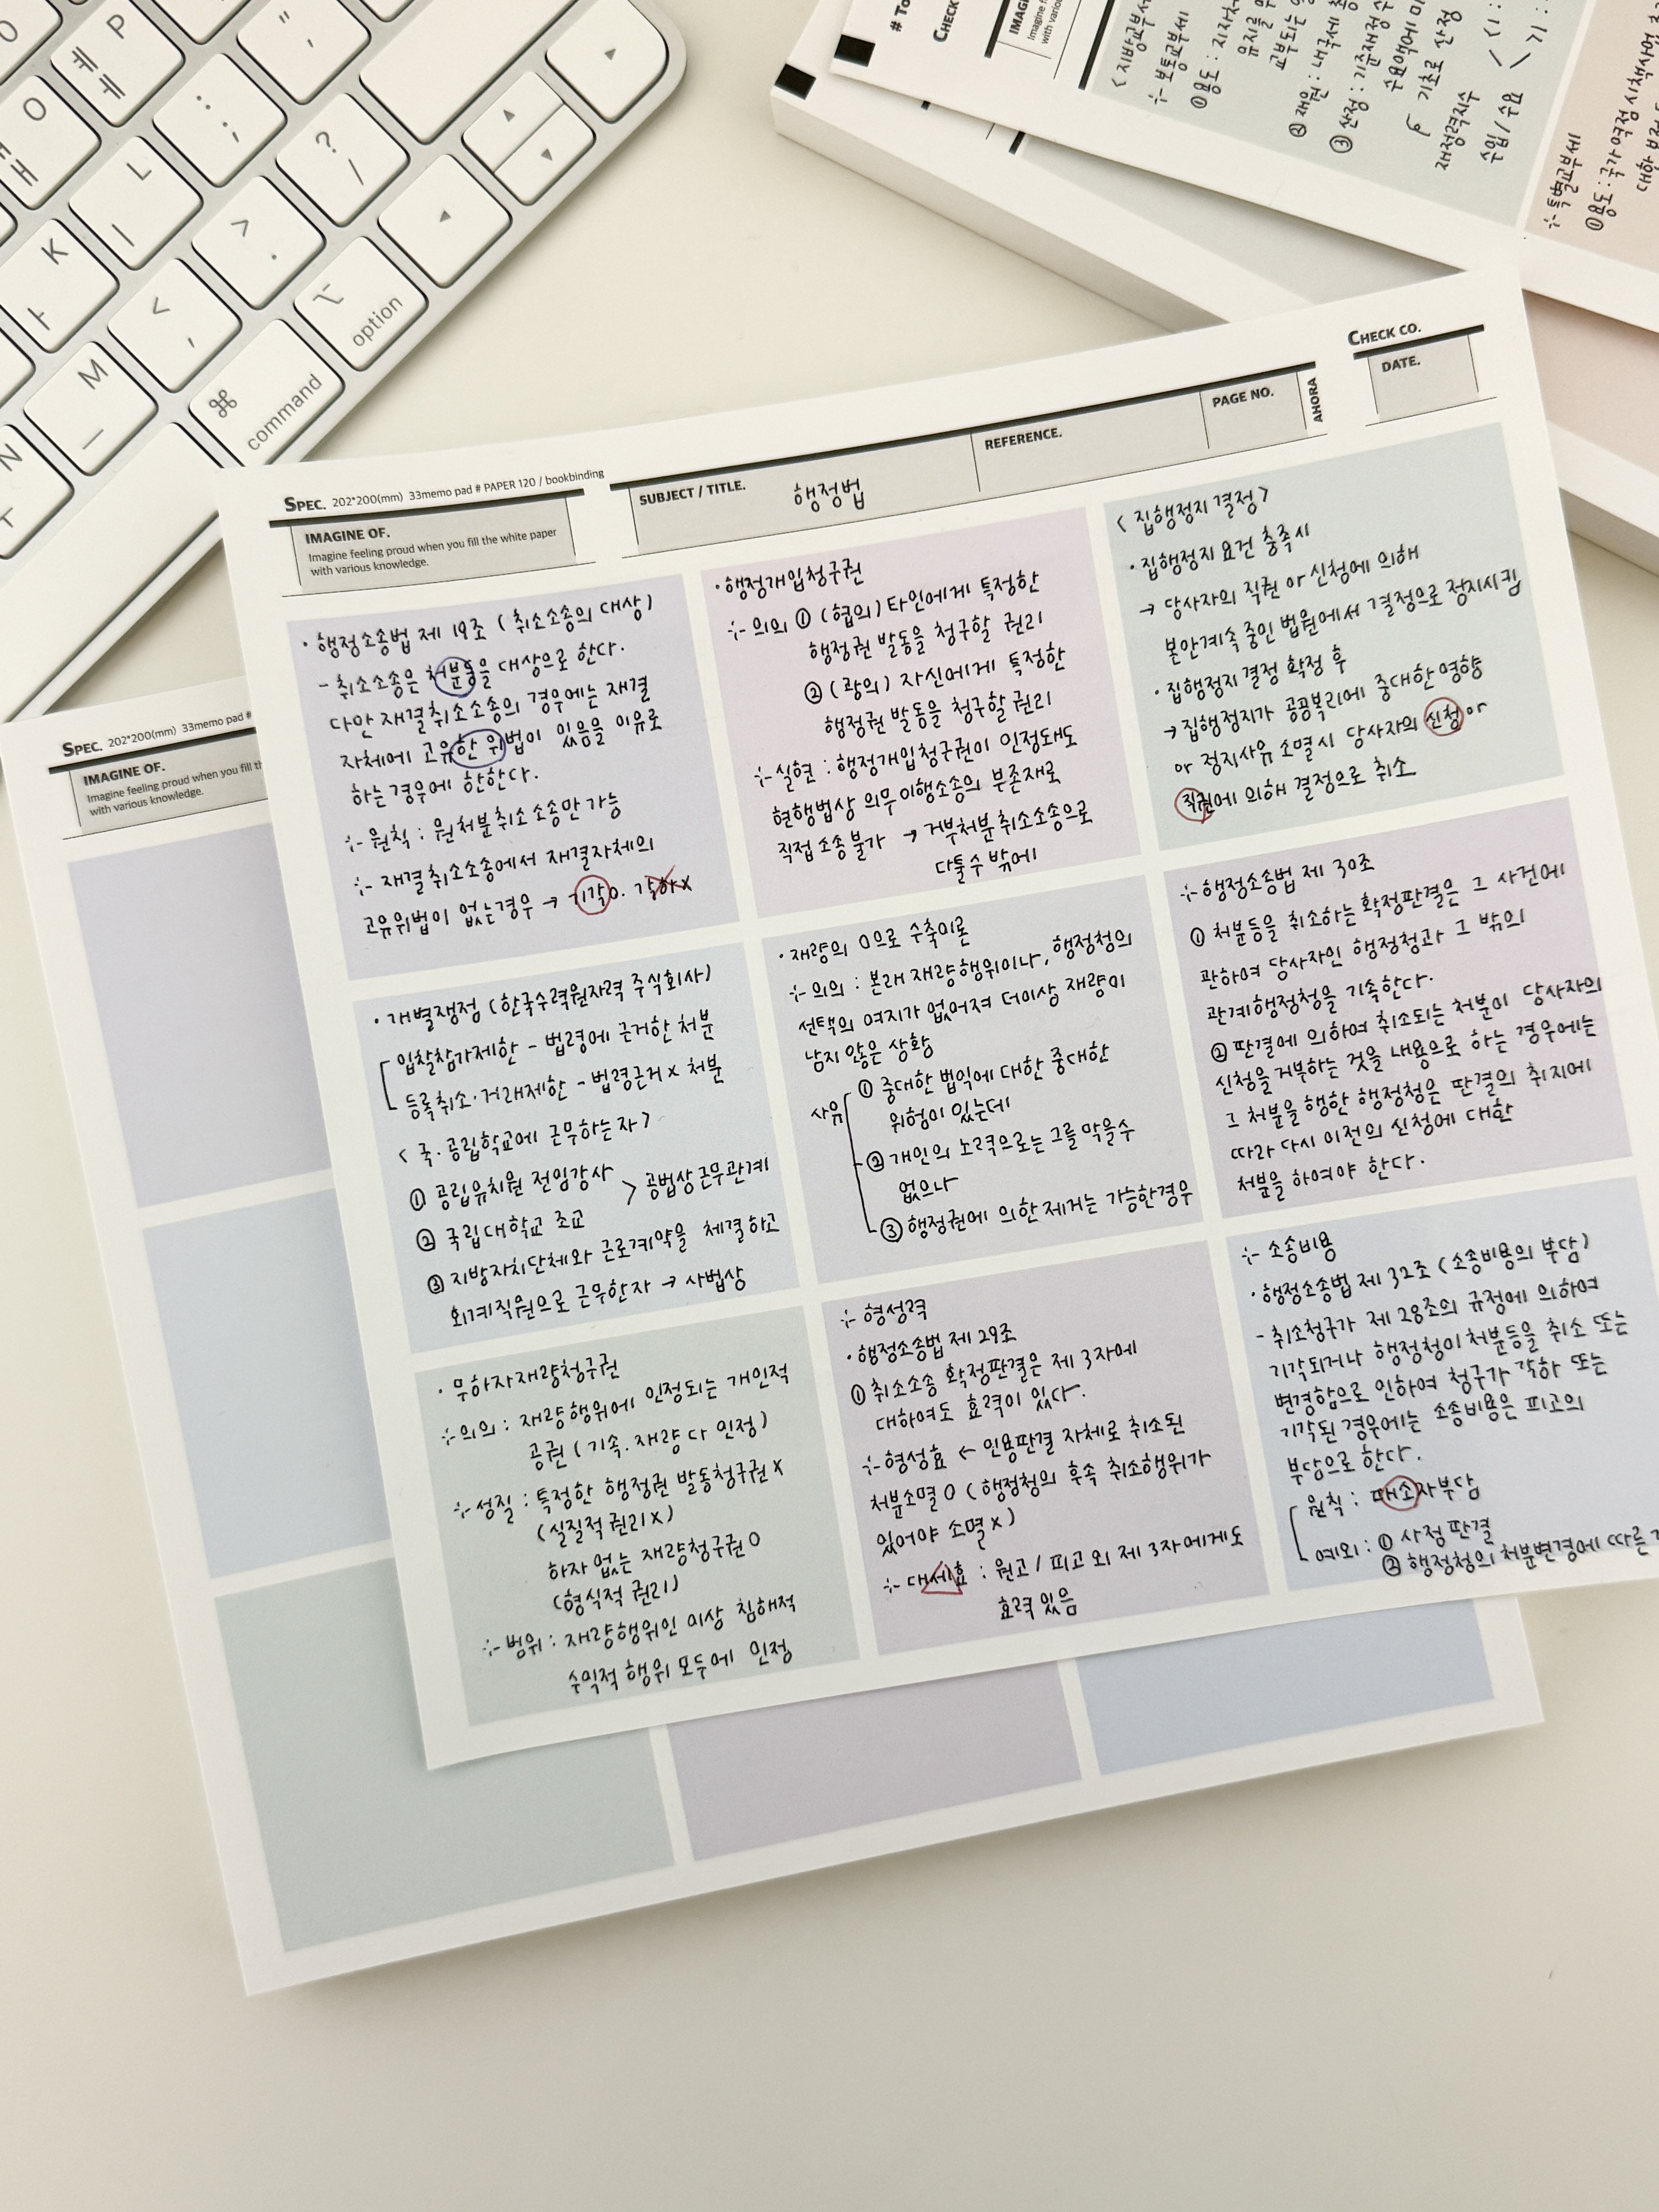 P
ㅔ
ㅖ
O
"
'
:
;
L
ㅣ
?
/
K
ㅏ
>
.
<
,
M
ㅡ
N
option
⌘
command
# To
CHECK
IMAG
Imagine f
with variou
<지방교부세
·:- 보통교부세
재정력지수
·:- 특별교부세
SPEC. 202*200(mm) 33memo pad #
IMAGINE OF.
Imagine feeling proud when you fill th
with various knowledge.
SPEC. 202*200(mm) 33memo pad # PAPER 120 / bookbinding
IMAGINE OF.
Imagine feeling proud when you fill the white paper
with various knowledge.
SUBJECT / TITLE.
행정법
REFERENCE.
PAGE NO.
AHORA
CHECK CO.
DATE.
· 행정소송법 제 19조 (취소소송의 대상)
- 취소소송은 처분등을 대상으로 한다.
다만 재결취소소송의 경우에는 재결
자체에 고유한 위법이 있음을 이유로
하는경우에 한한다.
·:- 원칙 : 원처분취소소송만 가능
·:- 재결취소소송에서 재결자체의
고유위법이 없는경우 → 기각O. 각하X
· 행정개입청구권
·:- 의의 ① (협의) 타인에게 특정한
행정권 발동을 청구할 권리
② (광의) 자신에게 특정한
행정권 발동을 청구할권리
·:- 실현 : 행정개입청구권이 인정돼도
현행법상 의무이행소송의 부존재로
직접 소송 불가 → 거부처분취소소송으로
다툴수 밖에
<집행정지 결정>
· 집행정지 요건 충족시
→ 당사자의 직권 or 신청에 의해
본안계속 중인 법원에서 결정으로 정지시킴
· 집행정지 결정 확정 후
→ 집행정지가 공공복리에 중대한 영향
or 정지사유 소멸시 당사자의 신청 or
직권에 의해 결정으로 취소
· 개별쟁점 (한국수력원자력 주식회사)
입찰참가제한 - 법령에 근거한 처분
등록취소·거래제한 - 법령근거 X 처분
<국.공립학교에 근무하는자>
① 공립유치원 전임강사
② 국립대학교 조교
> 공법상 근무관계
③ 지방자치단체와 근로계약을 체결하고
회계직원으로 근무한자 → 사법상
· 재량의 0으로 수축이론
·:- 의의 : 본래 재량행위이나, 행정청의
선택의 여지가 없어져 더이상 재량이
남지 않은 상황
사유
① 중대한 법익에 대한 중대한
위험이 있는데
② 개인의 노력으로는 그를 막을수
없으나
③ 행정권에 의한 제거는 가능한경우
·:- 행정소송법 제 30조
① 처분등을 취소하는 확정판결은 그 사건에
관하여 당사자인 행정청과 그 밖의
관계행정청을 기속한다.
② 판결에 의하여 취소되는 처분이 당사자의
신청을 거부하는 것을 내용으로 하는 경우에는
그 처분을 행한 행정청은 판결의 취지에
따라 다시 이전의 신청에 대한
처분을 하여야 한다.
· 무하자재량청구권
·:- 의의 : 재량행위에 인정되는 개인적
공권 (기속.재량 다 인정)
·:- 성질 : 특정한 행정권 발동청구권 X
(실질적 권리X)
하자 없는 재량청구권 O
(형식적 권리)
·:- 범위 : 재량행위인 이상 침해적
수익적 행위 모두에 인정
·:- 형성력
· 행정소송법 제 29조
① 취소소송 확정판결은 제 3자에
대하여도 효력이 있다.
·:- 형성효 ← 인용판결 자체로 취소된
처분소멸 O (행정청의 후속 취소행위가
있어야 소멸X)
·:- 대세효 : 원고 / 피고 외 제 3자에게도
효력 있음
·:- 소송비용
· 행정소송법 제 32조 (소송비용의 부담)
- 취소청구가 제 28조의 규정에 의하여
기각되거나 행정청이 처분등을 취소 또는
변경함으로 인하여 청구가 각하 또는
기각된 경우에는 소송비용은 피고의
부담으로 한다.
원칙 : 패소자부담
예외 : ① 사정 판결
② 행정청의 처분변경에 따른